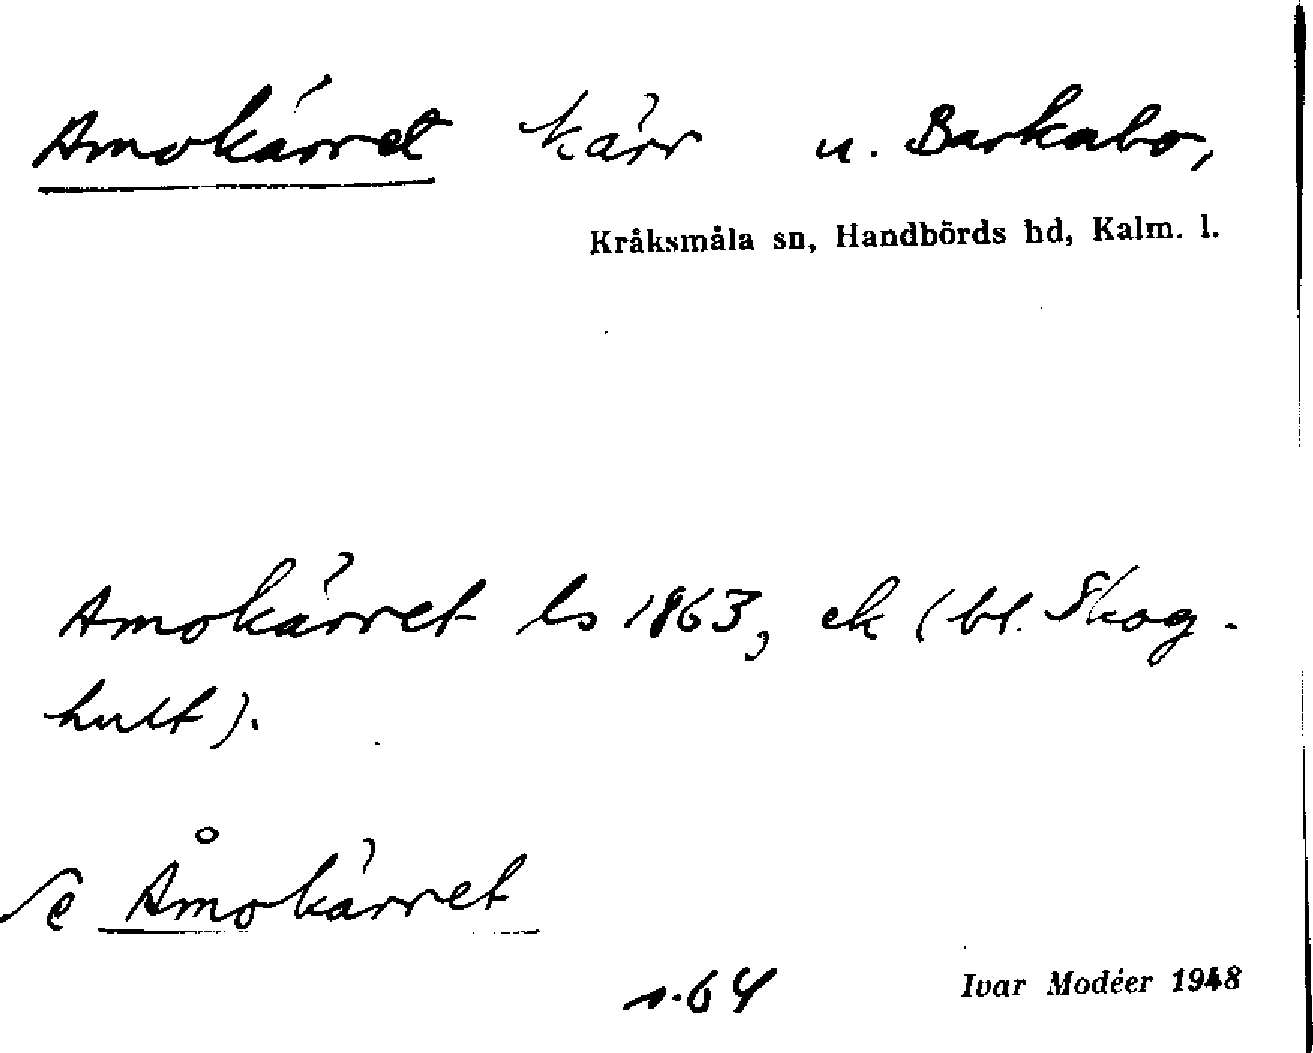 Amokärret kärr u. Barkabo,
Kråksmåla sn, Handbörds hd, Kalm. l.
Amokärret ls 1863, ek (bl. Skog-
hult).
Se Åmokärret
s. 64
Ivar Modéer 1948